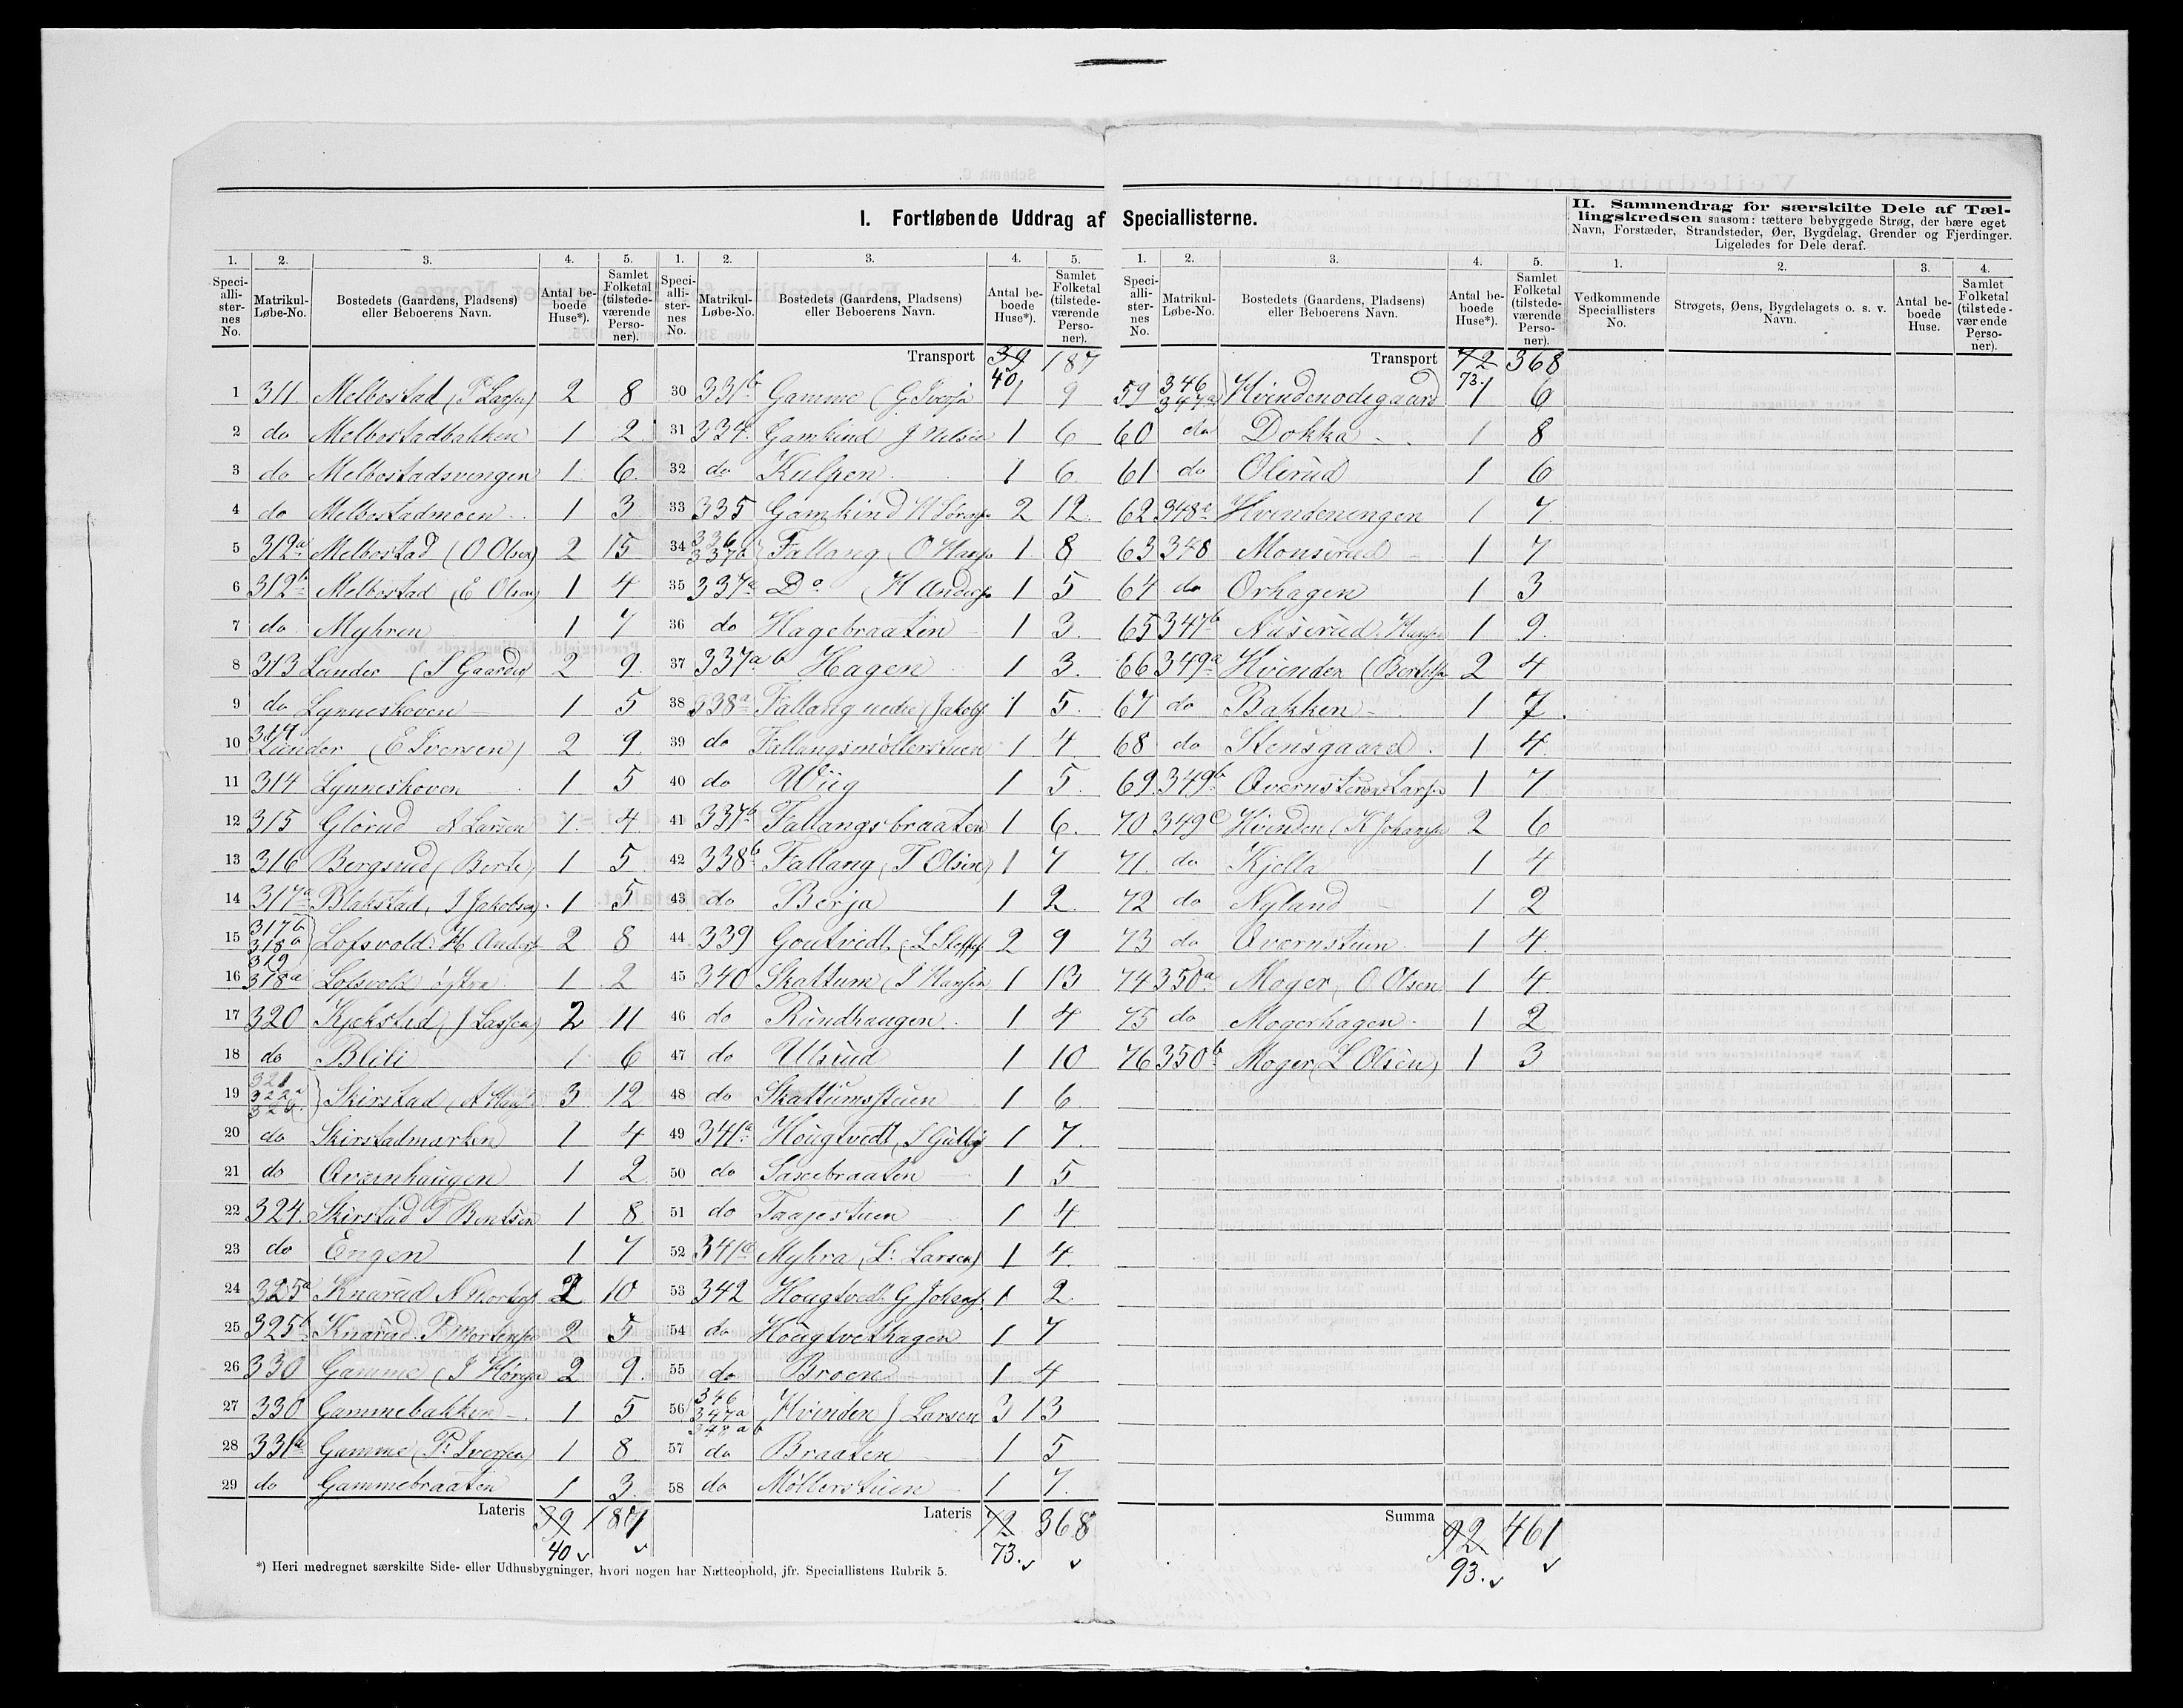 I. Fortløbende Uddrag af Speciallisterne.
II. Sammendrag for særskilte Dele af Tæl-
lingskredsen saasom: tættere bebyggede Strøg, der bære eget
Navn, Forstæder, Strandsteder, Øer, Bygdelag, Grender og Fjerdinger.
Ligeledes for Dele deraf.
1. 2. 3. 4. 5.
Speci-alli-ster-nes No. Matrikul-Løbe-No. Bostedets (Gaardens, Pladsens) eller Beboerens Navn. Antal be-boede Huse*). Samlet Folketal (tilstede-værende Perso-ner).
1 311. Melbostad (P Larsen) 2 8
2 do Melbostadbakken 1 2
3 do Melbostadsvengen 1 6
4 do Melbostadmoen 1 3
5 312a Melbostad (O Olsen) 2 15
6 312b Melbostad (E Olsen) 1 4
7 do Myhren 1 7
8 313 Lunder (S Gaarder) 2 9
9 do Lynneskoven 1 5
10 Lunder (E Iversen) 2 9
11 314 Lynneskoven 1 5
12 315 Glorud A Larsen 1 4
13 316 Bergsrud (Berte) 1 5
14 317a Blakstad, J Jakobsen 1 5
15 317b 318a Lofsvold H Anders 2 8
16 319 318a Lofsvold øystre 1 2
17 320 Kjekstad (J Lassen) 2 11
18 do Blili 1 6
19 321 322a 323 Skirstad (A Hans 3 12
20 do Skirstadmarken 1 4
21 do Qvernhaugen 1 2
22 324. Skirstad T Bentsen 1 8
23 do Engen 1 7
24 325a Knarud N Mortens 2 10
25 325b Knarud P Mortens 2 5
26 330 Gamme (I 2 9
27 330 Gammebakken 1 5
28 331a Gamme (P. Iversen) 1 8
29 do Gammebraaten 1 3
Lateris 39 187
40
1. 2. 3. 4. 5.
Speci-alli-ster-nes No. Matrikul-Løbe-No. Bostedets (Gaardens, Pladsens) eller Beboerens Navn. Antal be-boede Huse*). Samlet Folketal (tilstede-værende Perso-ner).
Transport 39 187
40
30 331b Gamme (G Ivers 1 9
31 334 Gamkind J Nilsen 1 6
32 do Kulpen 1 6
33 335 Gamkind H 2 12
34 336 337b Fallang O Hans 1 8
35 337a Do (H Anders 1 5
36 do Hagebraaten 1 3
37 337a b Hagen 1 3
38 338a Fallang nedre (Jakobs 1 5
39 do Fallangsmøllerstuen 1 4
40 do Wiig 1 5
41 337b Fallangsbraaten 1 6
42 338b Fallang (T Olsen) 1 7
43 do Berja 1 2
44 339 Goutvedt (L 2 9
45 340 Skattum (I Hansen 1 13
46 do Rundhaugen 1 4
47 do Ulsrud 1 10
48 do Skattumsstuen 1 6
49 341a Hougtvedt, 1 7
50 do 1 5
51 do Taajestuen 1 4
52 341c Myhra (L. Larsen) 1 4
53 342 Hougtvedt G Johans 1 2
54 do Hougtvethagen 1 7
55 do Broen 1 4
56 346 347a 348 a b Hvinden J Larsen 3 13
57 do Braaten 1 5
58 do Møllerstuen 1 7
Lateris 72 368
73.
1. 2. 3. 4. 5.
Speci-alli-ster-nes No. Matrikul-Løbe-No. Bostedets (Gaardens, Pladsens) eller Beboerens Navn. Antal be-boede Huse*). Samlet Folketal (tilstede-værende Perso-ner).
Transport 72 368
73.
59 346 347a Hvindenodegaard 1 6
60 do Dokka 1 8
61 do Olerud 1 6
62 348c Hvindenengen 1 7
63 348 Monsrud 1 7
64 do Orhagen 1 3
65 347b Nuserud Hans 1 9
66 349a Hvinden (Bertels 2 4
67 do Bakken 1 7
68 do Stensgaard 1 4
69 349b Qvernstuen Lars 1 7
70 349c Hvinden (K Johans 2 6
71 do Kjella 1 4
72 do Nylund 1 2
73 do Qvernstuen 1 4
74 350a Moger, O Olsen 1 4
75 do Mogerhagen 1 2
76 350b Moger L Olsen) 1 3
Summa 92 461
93.
1. 2. 3. 4.
Vedkommende Speciallisters No. Strøgets, Øens, Bygdelagets o. s. v. Navn. Antal be-boede Huse. Samlet Folketal (tilstede-værende Perso-ner).
*) Heri medregnet særskilte Side- eller Udhusbygninger, hvori nogen har Natteophold, jfr. Speciallistens Rubrik 5.